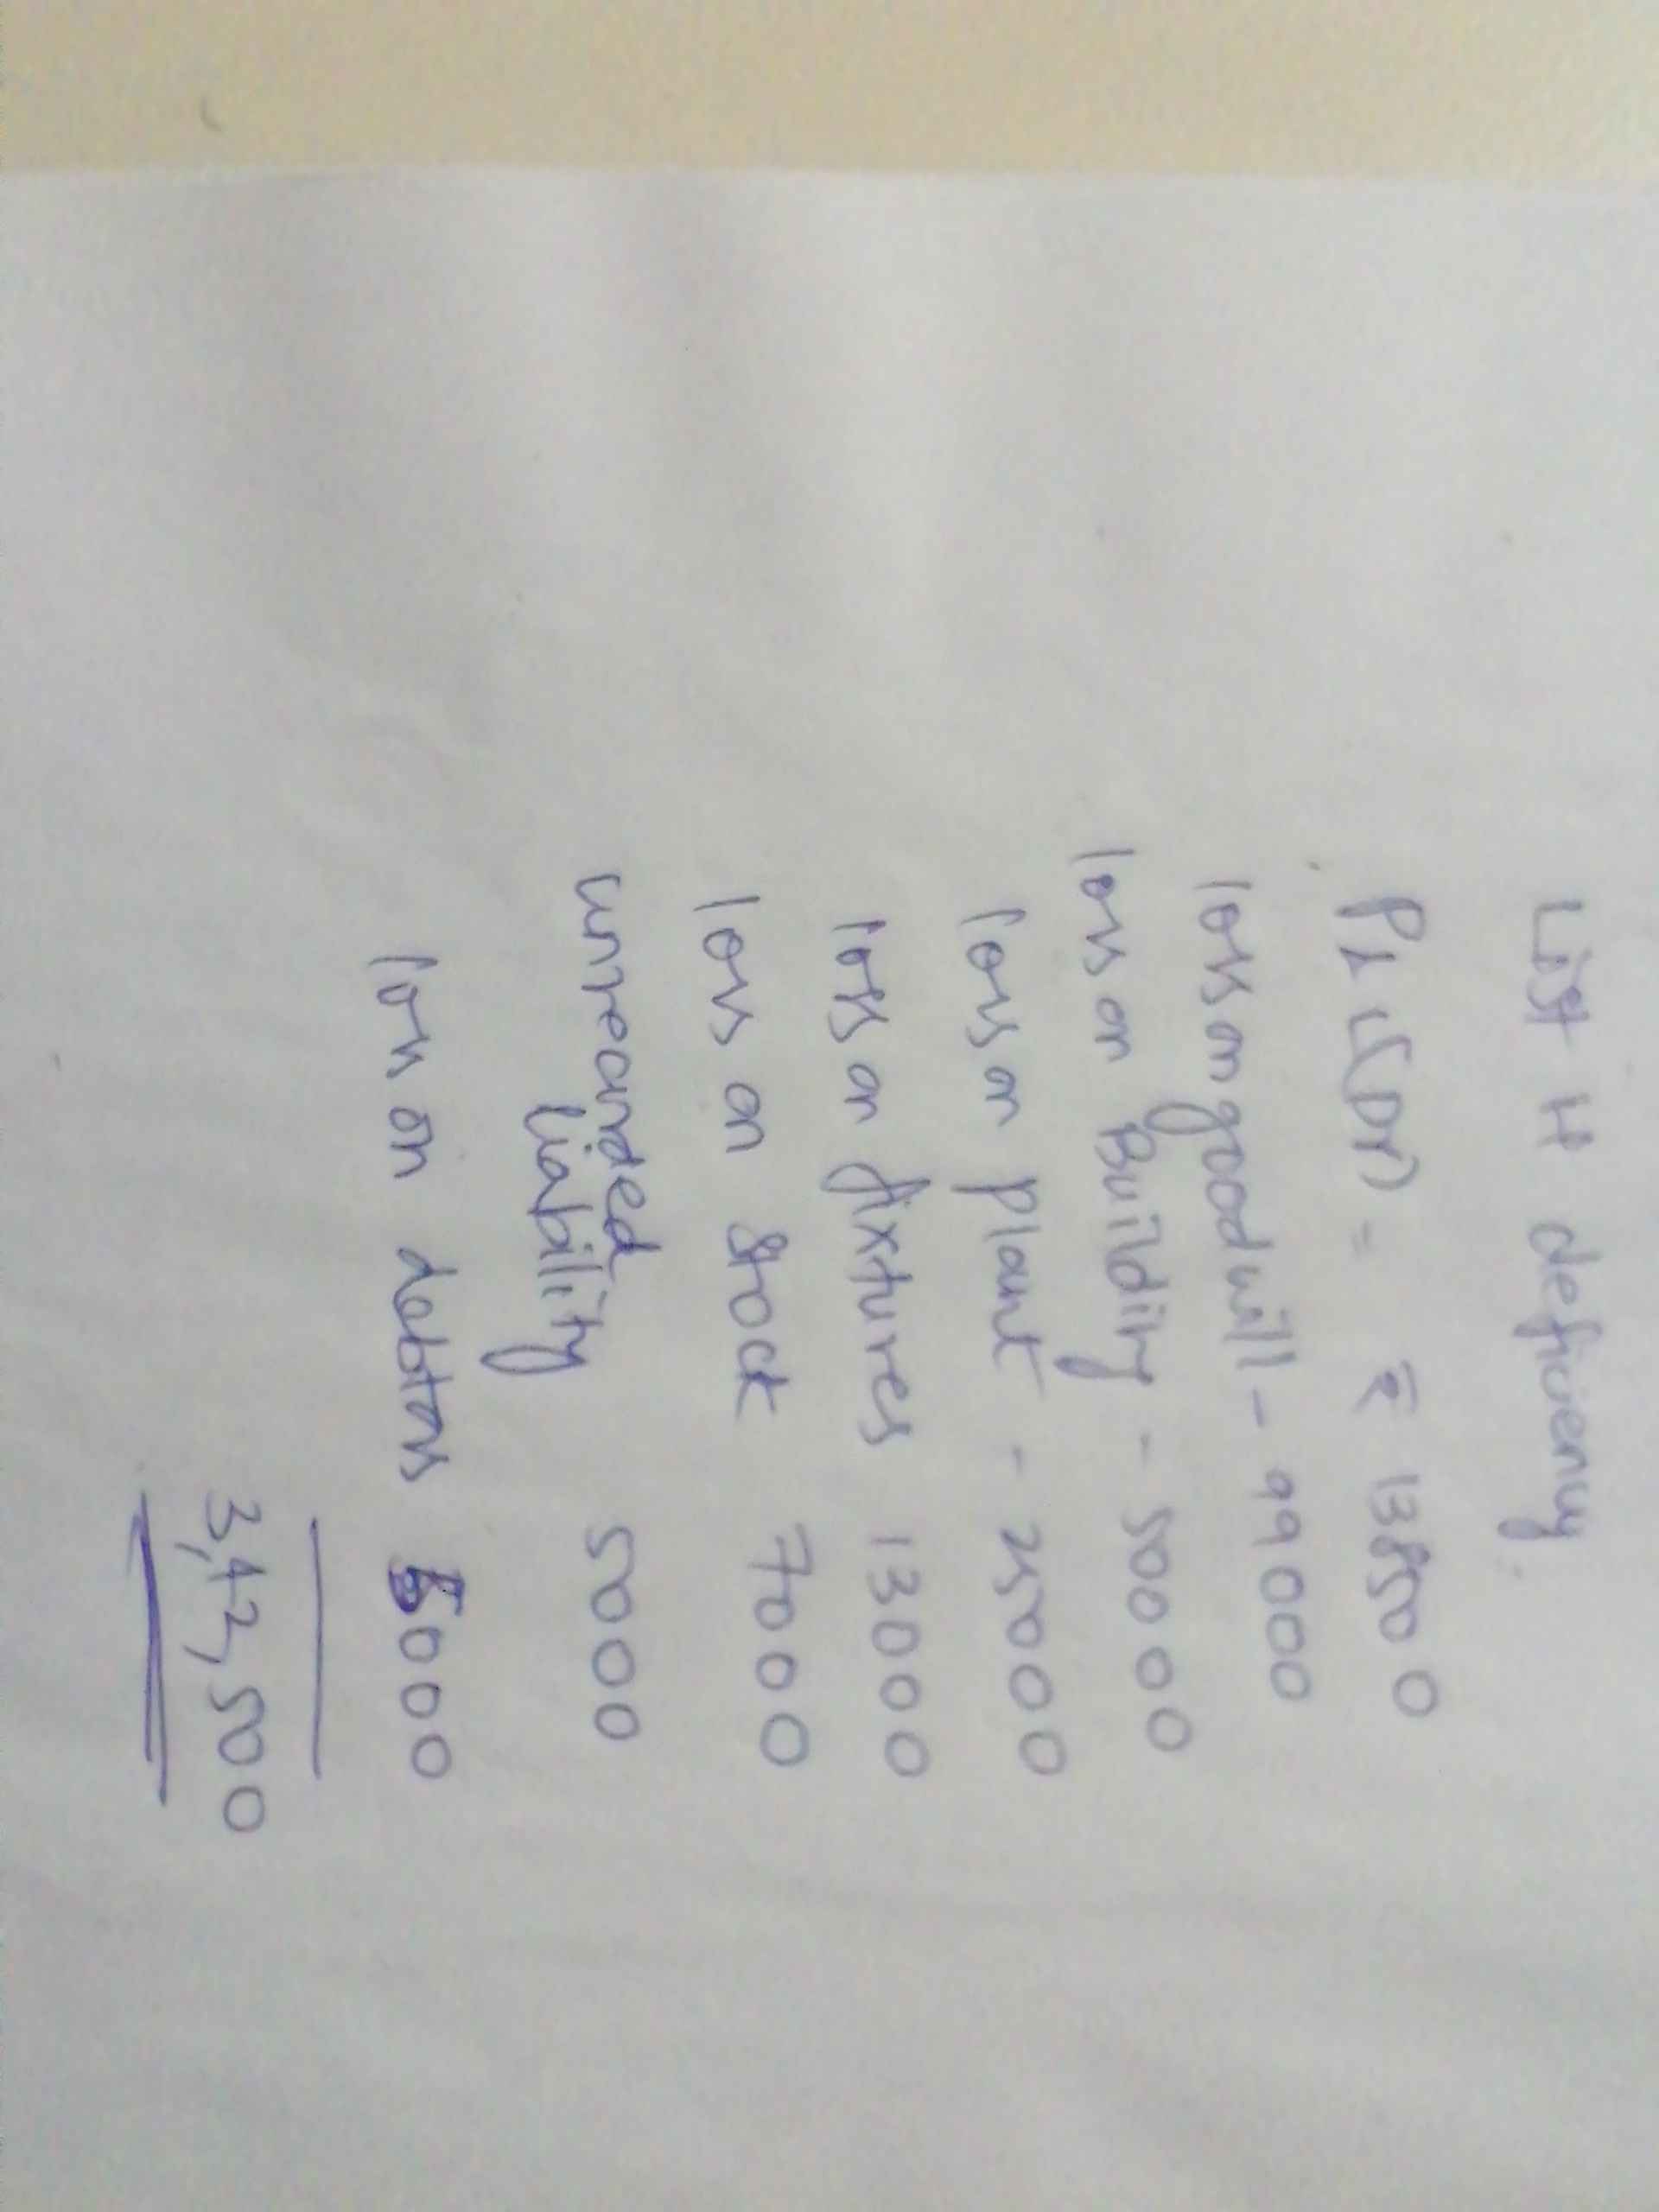 List H deficiency
PL (Dr) = ₹ 138500
loss on goodwill - 99000
loss on Building - 50000
loss on plant - 25000
loss on fixtures 13000
loss on stock 7000
unrecorded liability 5000
loss on debtors 5000
3,42,500